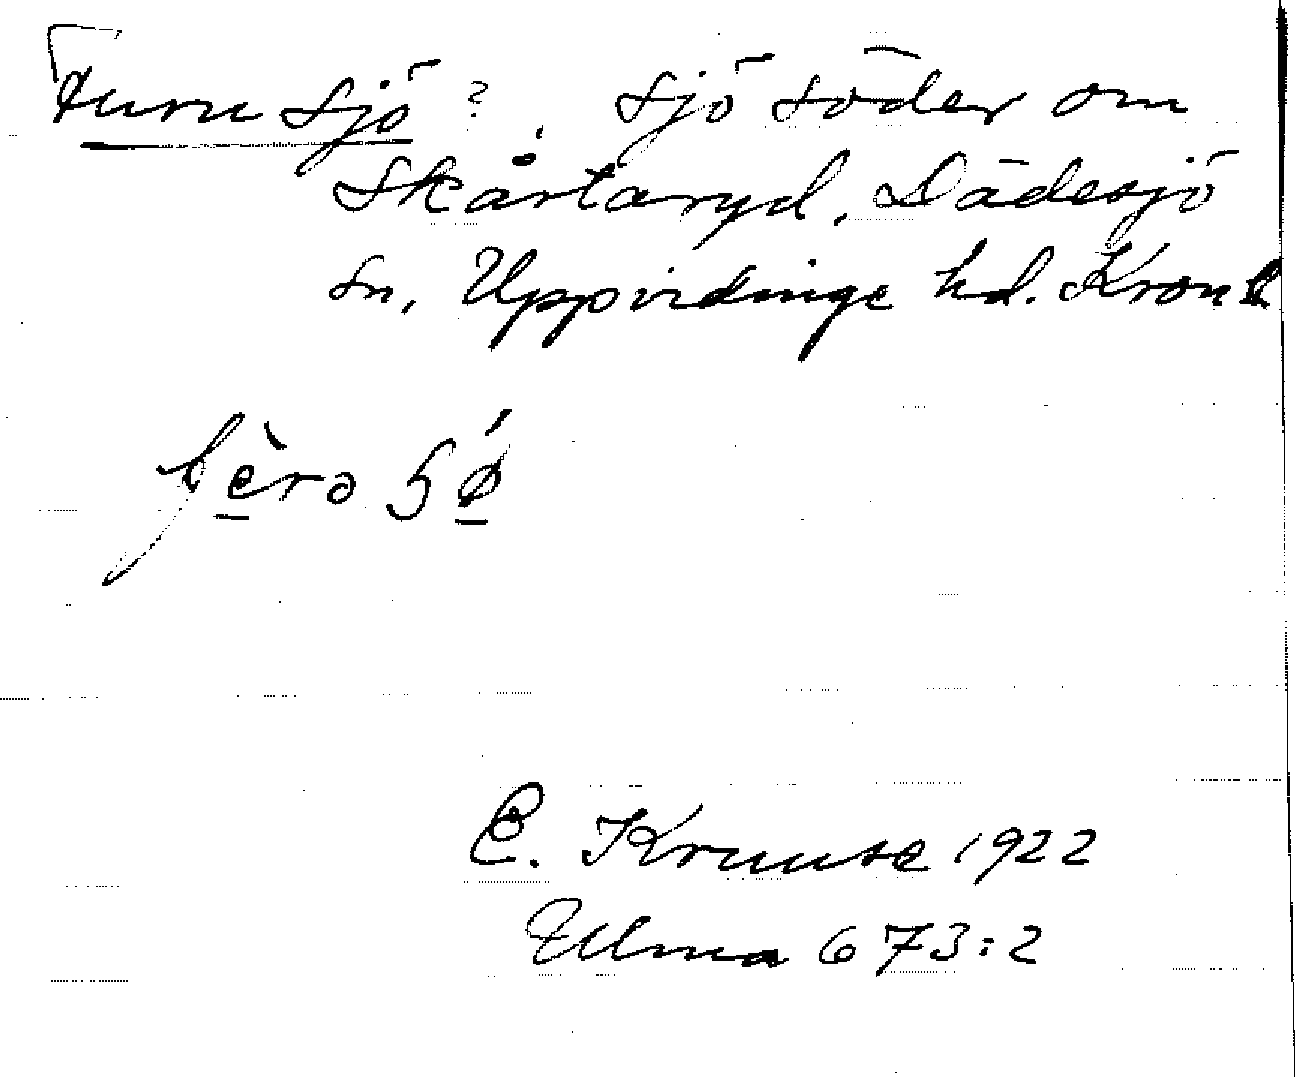 Furu sjö ?. Sjö söder om
Skårtaryd, Dädesjö
sn, Uppvidinge hd. Kron
E. Kruuse 1922
Ulma 673:2